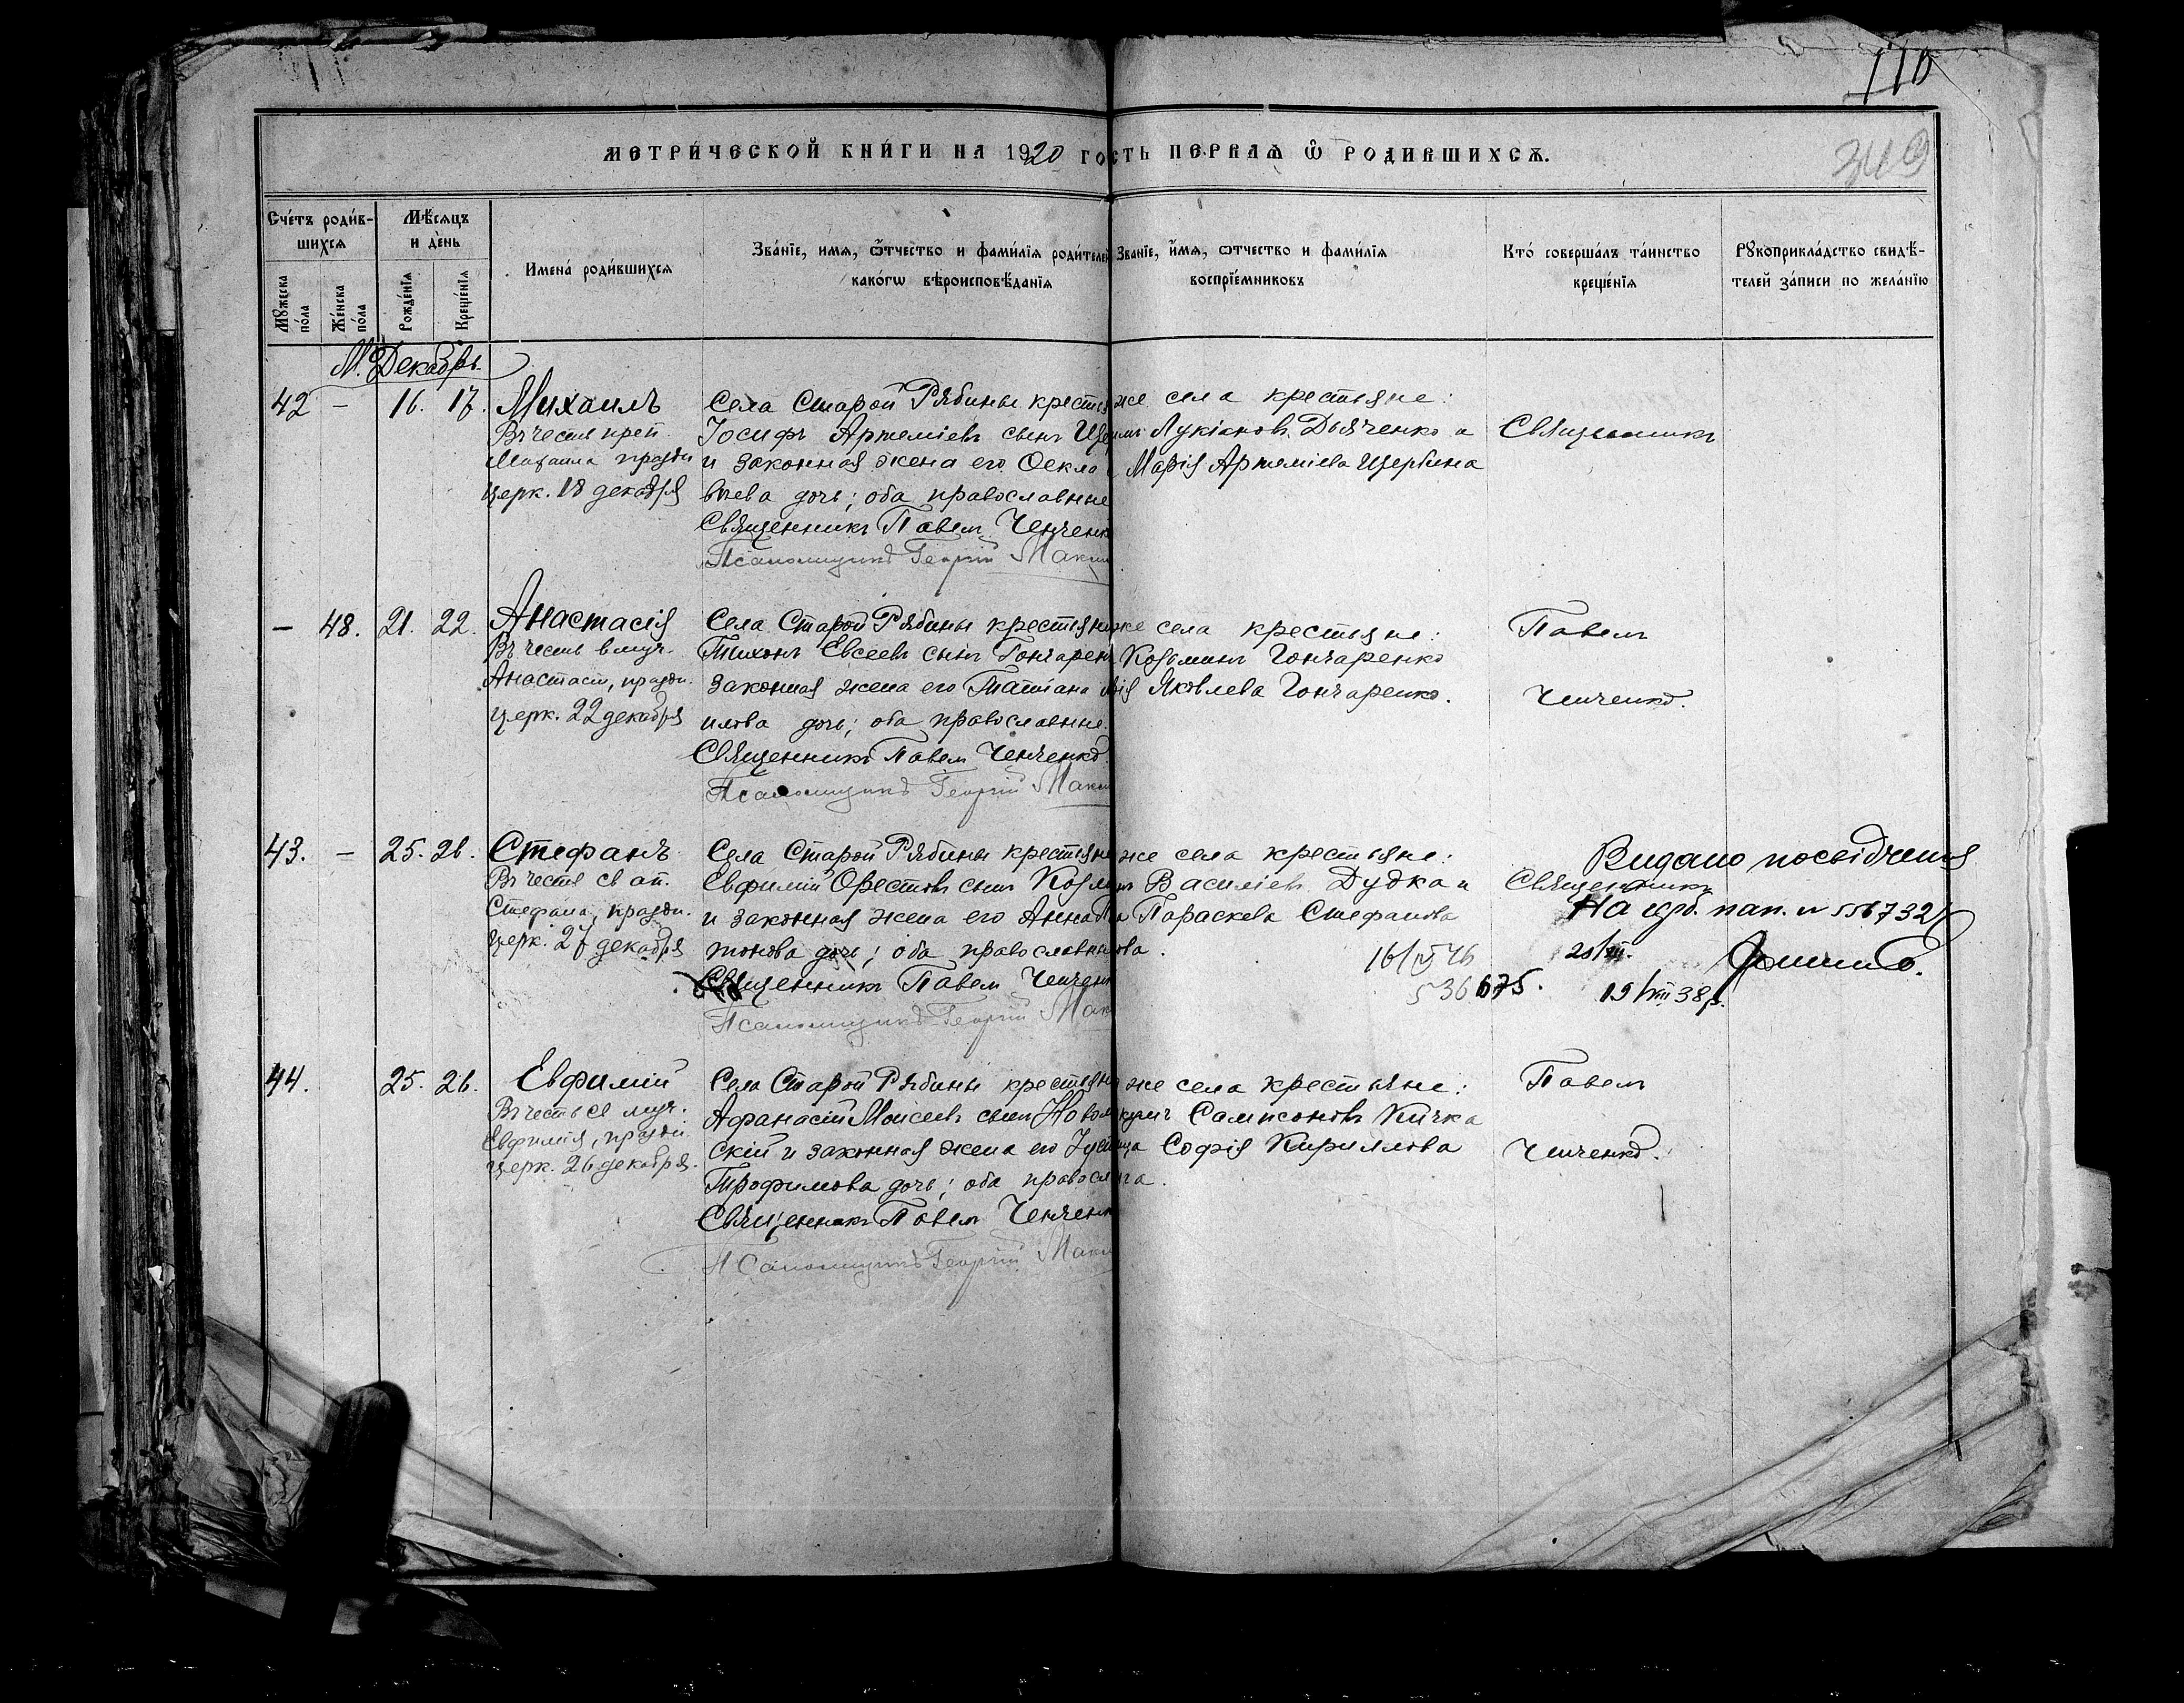 110
349
МЕТРИ́ЧЕСКОЙ КНИ́ГИ НА 1920 ГО СТЬ ПЕРВАѦ Ѿ РОДИВШИХСѦ.
Сче́тъ роди́в-
шихсѧ
Мѣ́сѧцъ
и де́нь
Мꙋжеска по́ла
Же́нска по́ла
Рожде́нїѧ
Креще́нїѧ
Имена́ роди́вшихсѧ
Зва́нїе, имѧ, ѻ́тчество и фами́лїѧ роди́телей
како́гѡ вѣроисповѣ́данїѧ
Зва́нїе, и́мѧ, ѻтчество и фами́лїѧ
воспрїе́мниковъ
Кто́ соверша́лъ та́инство
креще́нїѧ
Рꙋкоприкла́дство свидѣ́-
телей за́писи по жела́нїю
М. Декабрь.
42 — 16. 17. Михаилъ
Въ честь преп.
Михаила праздн
церк. 18 декабря
Села Старой Рябины крестья
Іосифъ Артеміевъ сынъ Ще
и законная жена его Ѳекла
вьева дочь; оба православные
Священникъ Павелъ Ченченк
Псаломщикъ Георгій Мак
же села крестьяне:
Лукіановъ Дьяченко и
Марія Артеміева Щербина
Священникъ
— 48. 21. 22. Анастасія
Въ честь вмуч.
Анастасіи, праздн.
церк. 22 декабря
Села Старой Рябины крестьяни
Тихонъ Евсеевъ сынъ Гончарен
законная жена его Татіана
илова дочь; оба православные.
Священникъ Павелъ Ченченко.
Псаломщикъ Георгій Мак
же села крестьяне:
Козьминъ Гончаренко
Яковлева Гончаренко.
Павелъ
Ченченко.
43. — 25. 26. Стефанъ
Въ честь св ап.
Стефана, праздн.
церк. 27 декабря
Села Старой Рябины крестьяни
Евфимій Орестовъ сынъ Козь
и законная жена его Анна
тонова дочь; оба православны
Священникъ Павелъ Ченчен
Псаломщикъ Георгій Мак
же села крестьяне:
Василіевъ Дудка и
Параскева Стефанова
ова.
16/IV 46
536675.
Видано посвідчення
Священникъ
На нап. № 556732
20/III.
19/VIII 38р.
44. 25. 26. Евфимій
Въ честь св муч.
Евфимія, праздн
церк. 26 декабря.
Села Старой Рябины крестьяни
Афанасій Моисеевъ сынъ Ново
скій и законная жена его
Трофимова дочь; оба правосл
Священникъ Павелъ Ченчен
Псаломщикъ Георгій Мак
же села крестьяне:
Сампсоновъ Кичка
Софія Кириллова
Павелъ
Ченченко.